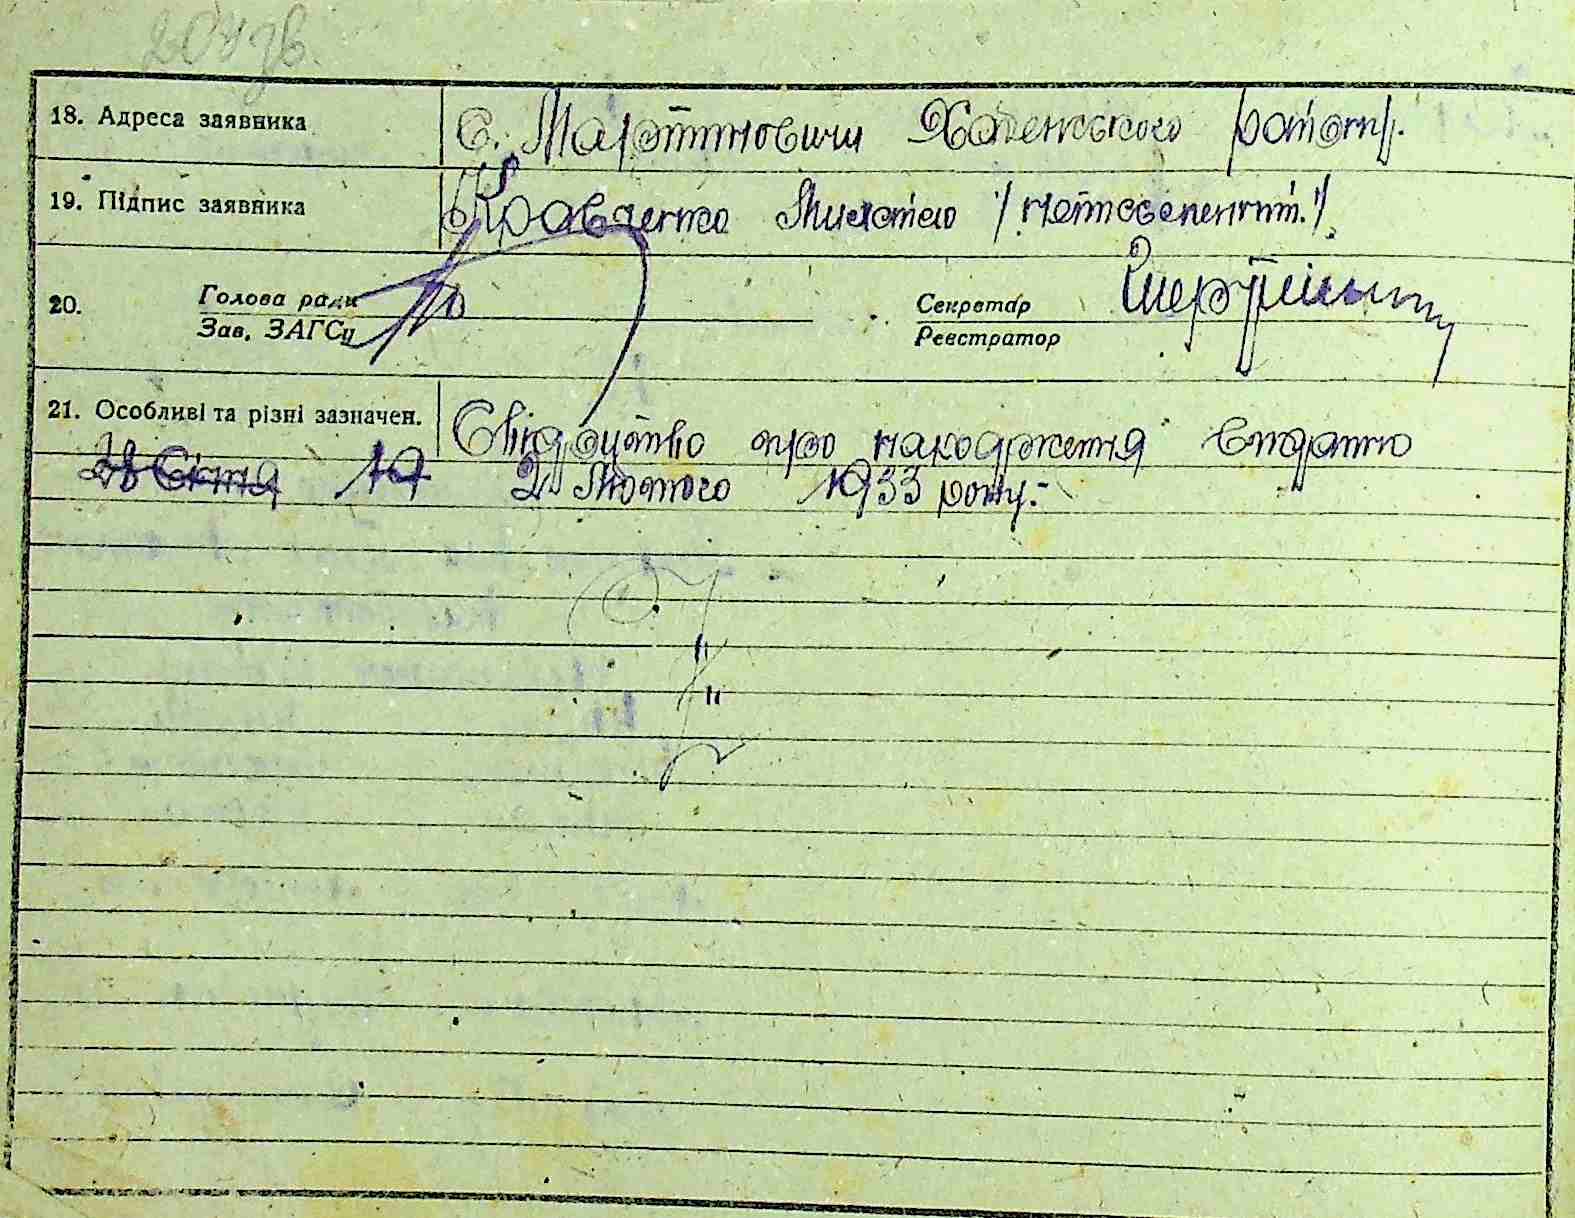 204 зв.
18. Адреса заявника с. Мартиновичи Хабенського району.
19. Підпис заявника Кравченко Михайло /неписьменний./
20. Голова ради Секретар
Зав. ЗАГСу Реєстратор
21. Особливі та різні зазначен. Свідоцтво про находження видано
28 Січня 19 2 Лютого 1933 року.-